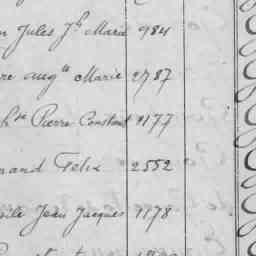 Jules Jh Marie 984
augte Marie 2787
Pierre Constant 1177
Felix 2552
Jean Jacques 1178